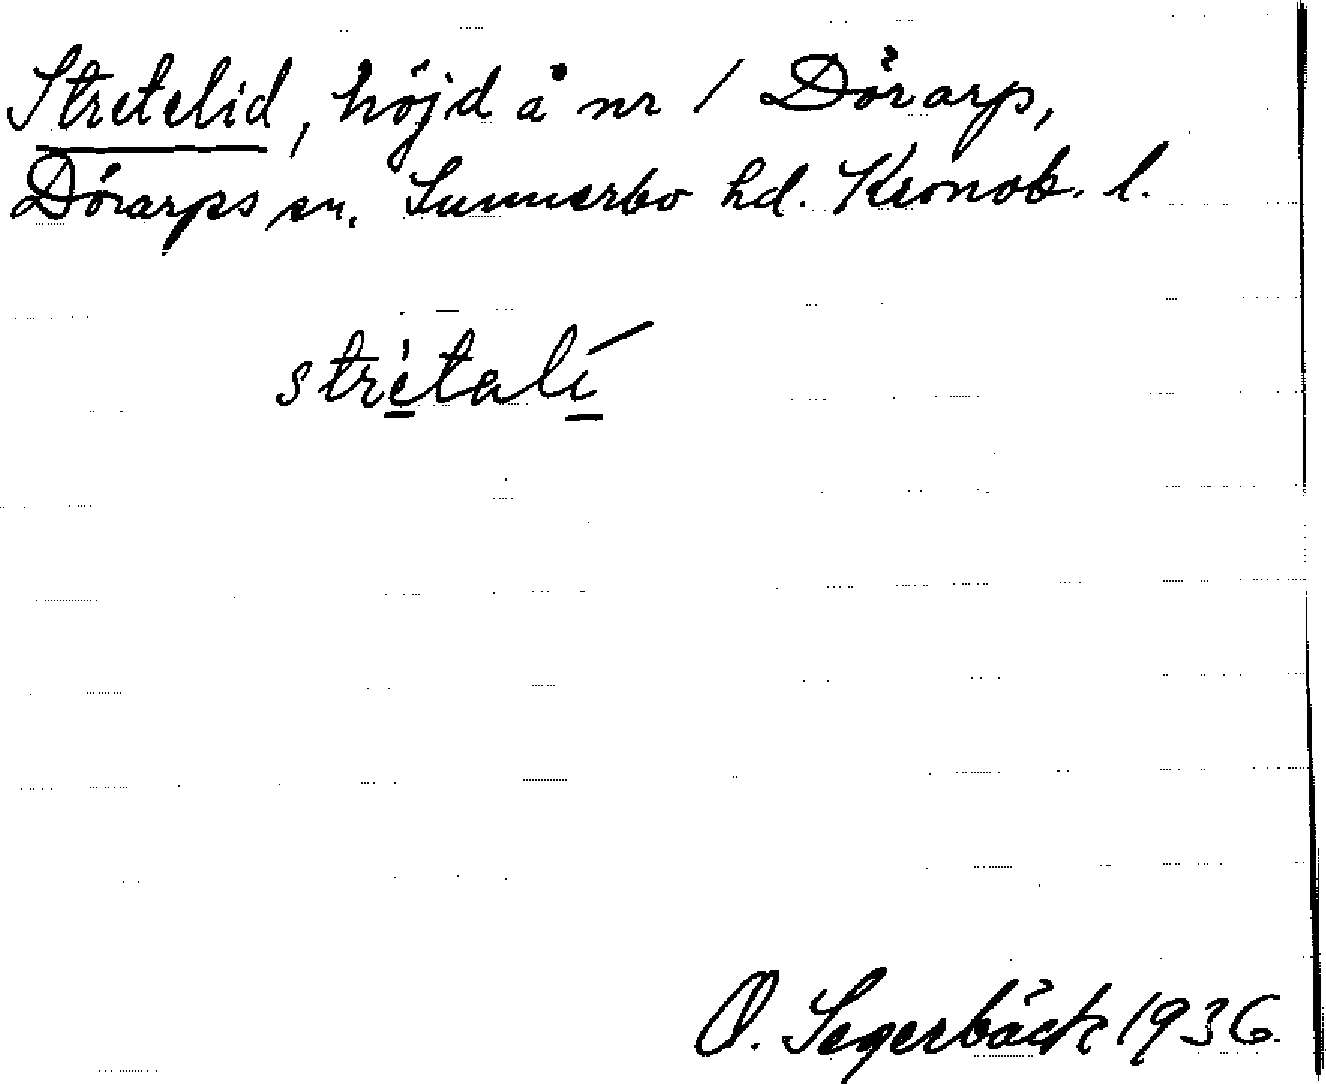 Stretelid, höjd å nr 1 Dörarp,
Dörarps sn. Sunnerbo hd. Kronob. l.
strètalí
O. Segerbäck 1936.